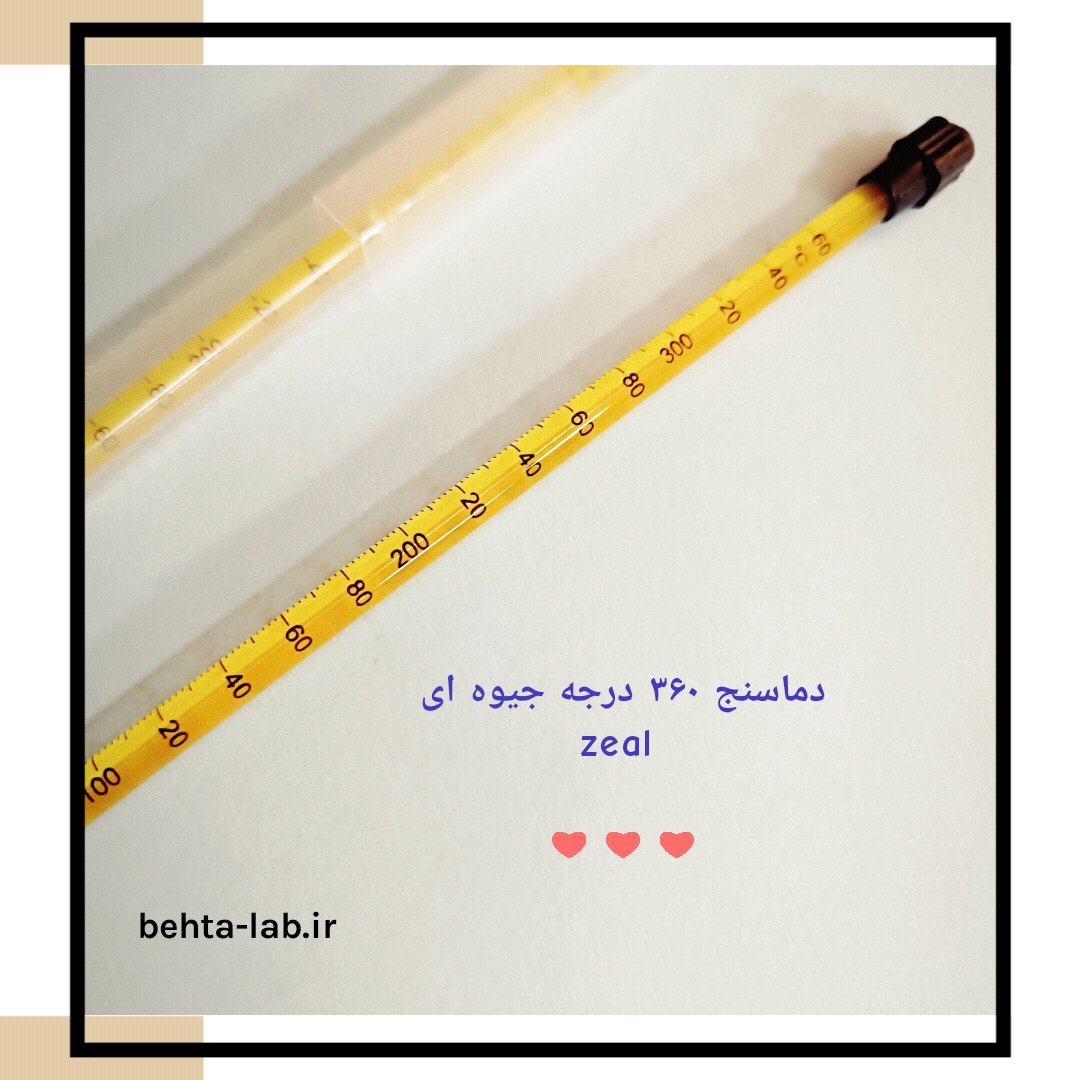 60
°C
40
20
300
80
60
40
20
200
80
60
40
20
100
200
80
60
دماسنج ۳۶۰ درجه جیوه ای
zeal
behta-lab.ir